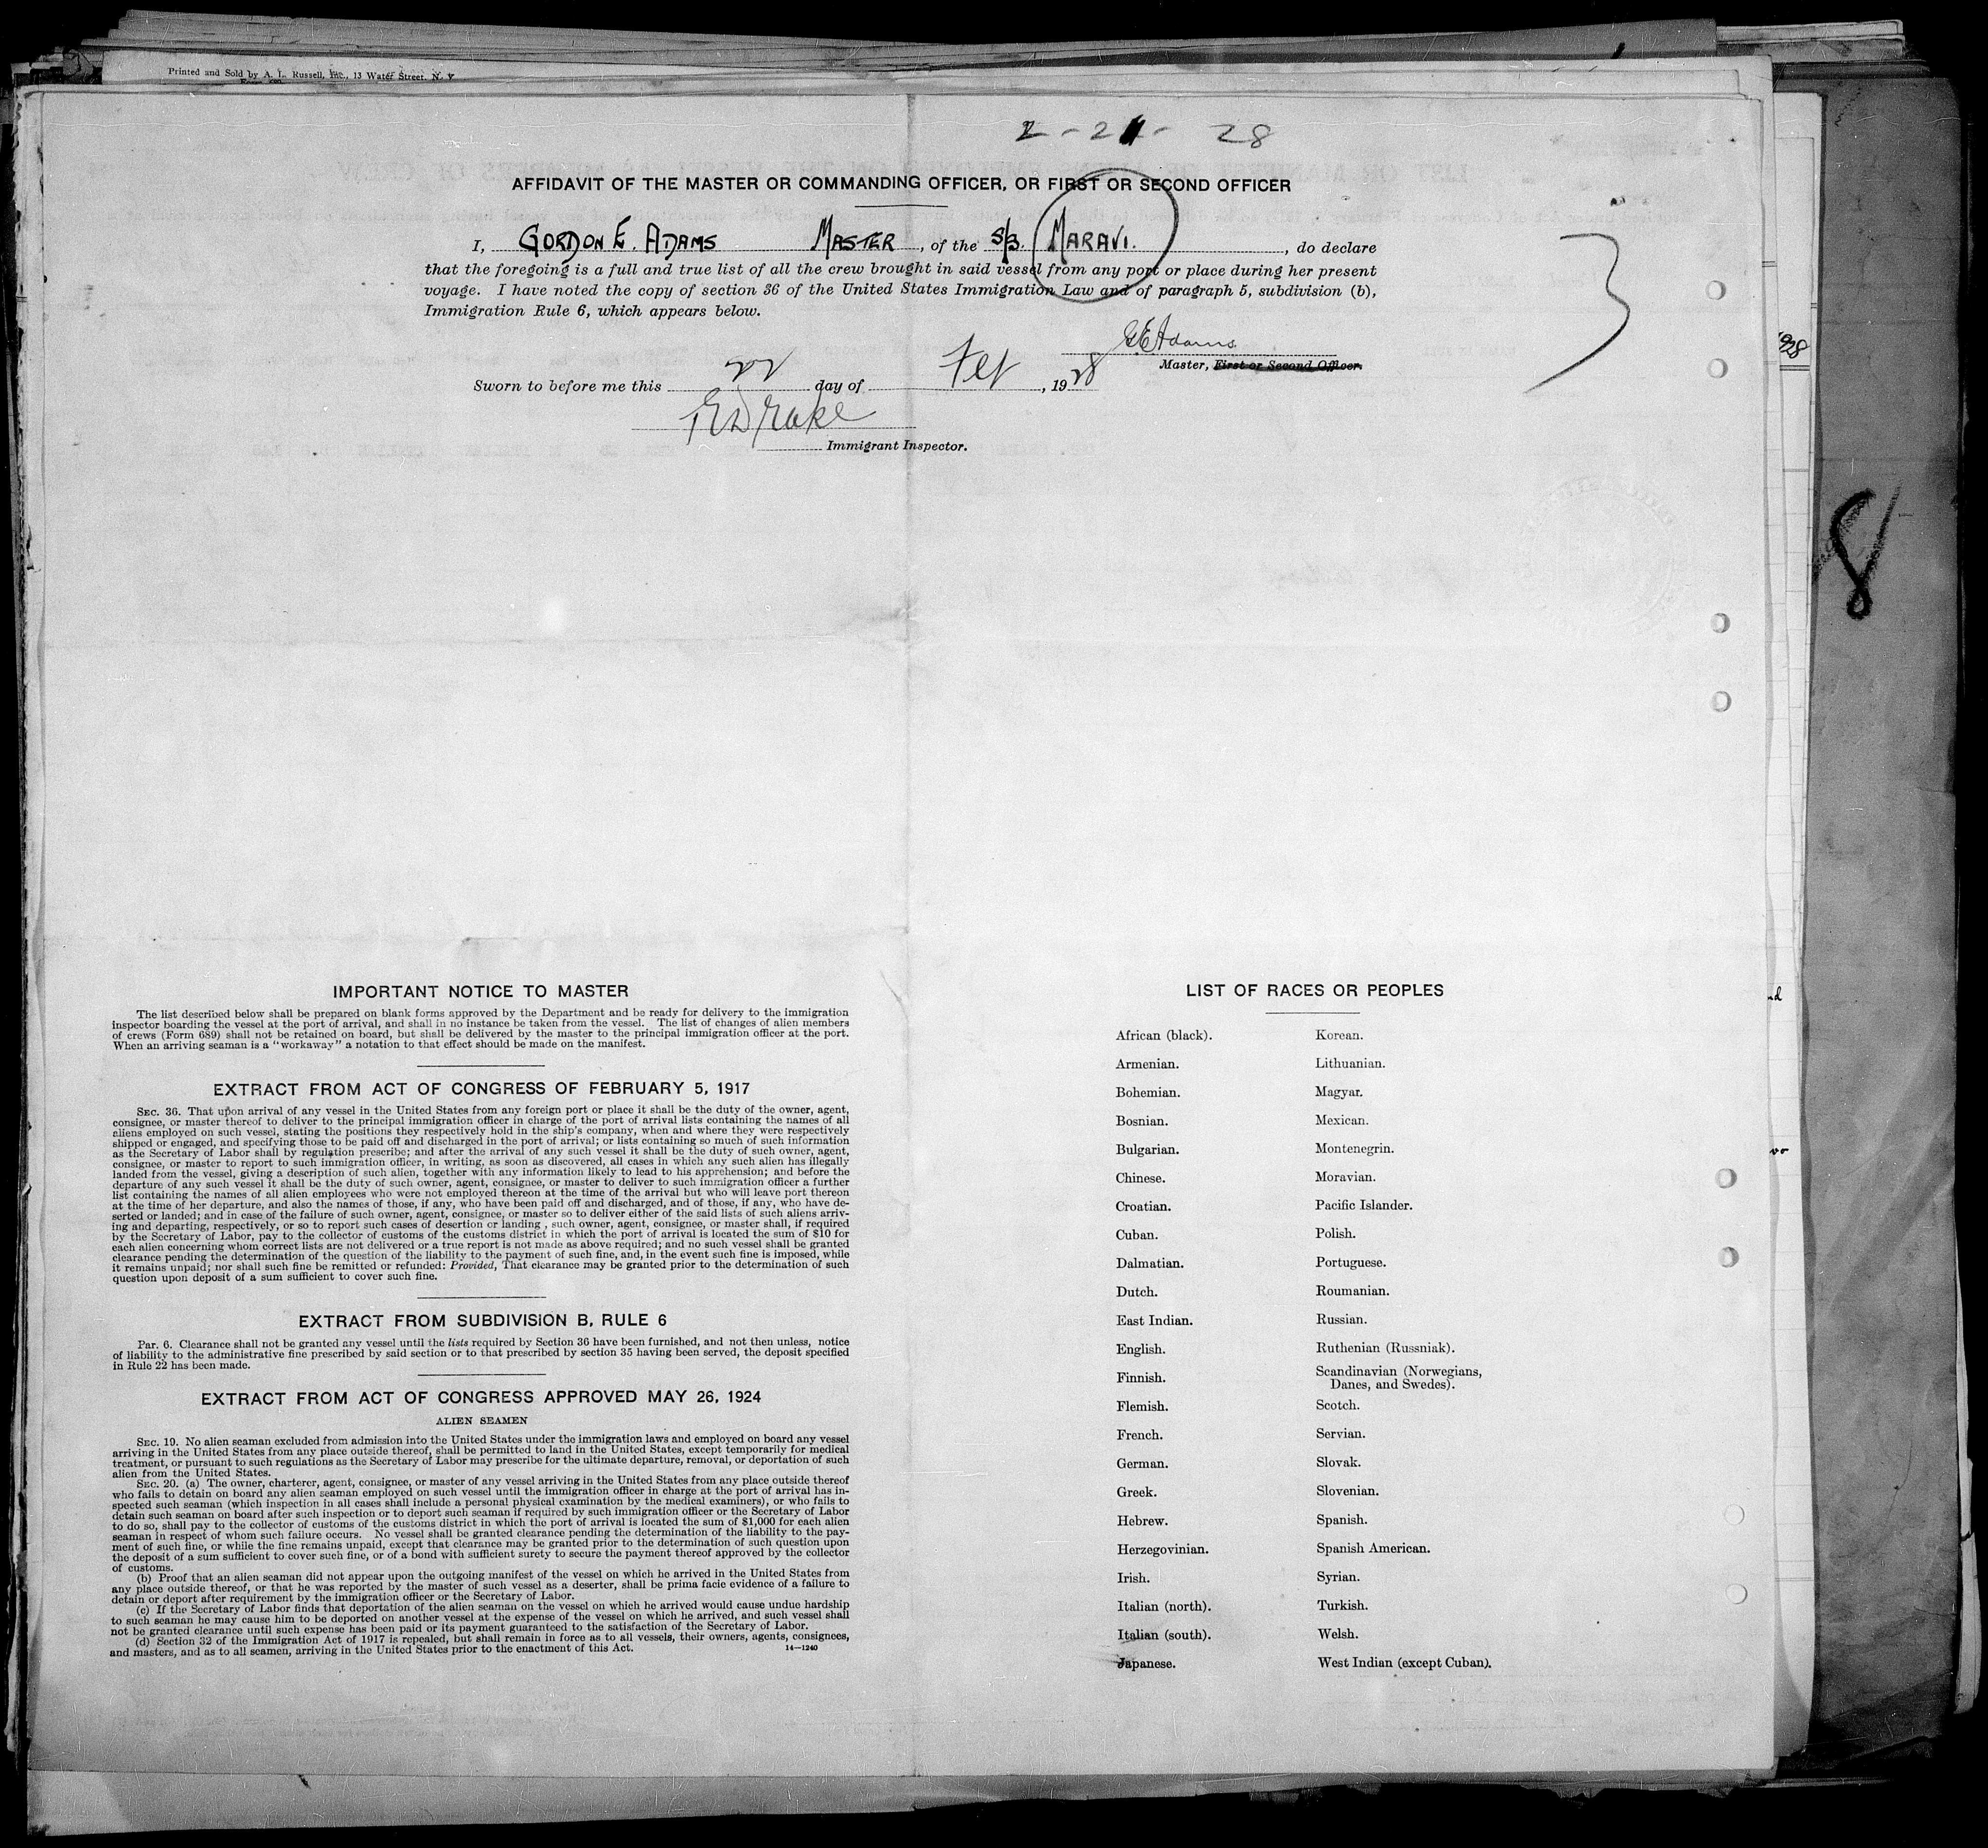 Printed and Sold by A. L. Russell, Inc., 13 Water Street. N. Y
2-21-28
AFFIDAVIT OF THE MASTER OR COMMANDING OFFICER, OR FIRST OR SECOND OFFICER
I, GORDON E. ADAMS MASTER, of the S/S. MARAVI., do declare
that the foregoing is a full and true list of all the crew brought in said vessel from any port or place during her present
voyage. I have noted the copy of section 36 of the United States Immigration Law and of paragraph 5, subdivision (b),
Immigration Rule 6, which appears below.
G E Adams
Master, First or Second Officer.
Sworn to before me this 22 day of Feb, 1928
Drake
Immigrant Inspector.
3
28
8
IMPORTANT NOTICE TO MASTER
The list described below shall be prepared on blank forms approved by the Department and be ready for delivery to the immigration
inspector boarding the vessel at the port of arrival, and shall in no instance be taken from the vessel. The list of changes of alien members
of crews (Form 689) shall not be retained on board, but shall be delivered by the master to the principal immigration officer at the port.
When an arriving seaman is a "workaway" a notation to that effect should be made on the manifest.
EXTRACT FROM ACT OF CONGRESS OF FEBRUARY 5, 1917
SEC. 36. That upon arrival of any vessel in the United States from any foreign port or place it shall be the duty of the owner, agent,
consignee, or master thereof to deliver to the principal immigration officer in charge of the port of arrival lists containing the names of all
aliens employed on such vessel, stating the positions they respectively hold in the ship's company, when and where they were respectively
shipped or engaged, and specifying those to be paid off and discharged in the port of arrival; or lists containing so much of such information
as the Secretary of Labor shall by regulation prescribe; and after the arrival of any such vessel it shall be the duty of such owner, agent,
consignee, or master to report to such immigration officer, in writing, as soon as discovered, all cases in which any such alien has illegally
landed from the vessel, giving a description of such alien, together with any information likely to lead to his apprehension; and before the
departure of any such vessel it shall be the duty of such owner, agent, consignee, or master to deliver to such immigration officer a further
list containing the names of all alien employees who were not employed thereon at the time of the arrival but who will leave port thereon
at the time of her departure, and also the names of those, if any, who have been paid off and discharged, and of those, if any, who have de-
serted or landed; and in case of the failure of such owner, agent, consignee, or master so to deliver either of the said lists of such aliens arriv-
ing and departing, respectively, or so to report such cases of desertion or landing , such owner, agent, consignee, or master shall, if required
by the Secretary of Labor, pay to the collector of customs of the customs district in which the port of arrival is located the sum of $10 for
each alien concerning whom correct lists are not delivered or a true report is not made as above required; and no such vessel shall be granted
clearance pending the determination of the question of the liability to the payment of such fine, and, in the event such fine is imposed, while
it remains unpaid; nor shall such fine be remitted or refunded: Provided, That clearance may be granted prior to the determination of such
question upon deposit of a sum sufficient to cover such fine.
EXTRACT FROM SUBDIVISION B, RULE 6
Par. 6. Clearance shall not be granted any vessel until the lists required by Section 36 have been furnished, and not then unless, notice
of liability to the administrative fine prescribed by said section or to that prescribed by section 35 having been served, the deposit specified
in Rule 22 has been made.
EXTRACT FROM ACT OF CONGRESS APPROVED MAY 26, 1924
ALIEN SEAMEN
SEC. 19. No alien seaman excluded from admission into the United States under the immigration laws and employed on board any vessel
arriving in the United States from any place outside thereof, shall be permitted to land in the United States, except temporarily for medical
treatment, or pursuant to such regulations as the Secretary of Labor may prescribe for the ultimate departure, removal, or deportation of such
alien from the United States.
SEC. 20. (a) The owner, charterer, agent, consignee, or master of any vessel arriving in the United States from any place outside thereof
who fails to detain on board any alien seaman employed on such vessel until the immigration officer in charge at the port of arrival has in-
spected such seaman (which inspection in all cases shall include a personal physical examination by the medical examiners), or who fails to
detain such seaman on board after such inspection or to deport such seaman if required by such immigration officer or the Secretary of Labor
to do so, shall pay to the collector of customs of the customs district in which the port of arrival is located the sum of $1,000 for each alien
seaman in respect of whom such failure occurs. No vessel shall be granted clearance pending the determination of the liability to the pay-
ment of such fine, or while the fine remains unpaid, except that clearance may be granted prior to the determination of such question upon
the deposit of a sum sufficient to cover such fine, or of a bond with sufficient surety to secure the payment thereof approved by the collector
of customs.
(b) Proof that an alien seaman did not appear upon the outgoing manifest of the vessel on which he arrived in the United States from
any place outside thereof, or that he was reported by the master of such vessel as a deserter, shall be prima facie evidence of a failure to
detain or deport after requirement by the immigration officer or the Secretary of Labor.
(c) If the Secretary of Labor finds that deportation of the alien seaman on the vessel on which he arrived would cause undue hardship
to such seaman he may cause him to be deported on another vessel at the expense of the vessel on which he arrived, and such vessel shall
not be granted clearance until such expense has been paid or its payment guaranteed to the satisfaction of the Secretary of Labor.
(d) Section 32 of the Immigration Act of 1917 is repealed, but shall remain in force as to all vessels, their owners, agents, consignees,
and masters, and as to all seamen, arriving in the United States prior to the enactment of this Act. 14—1240
LIST OF RACES OR PEOPLES
African (black). Korean.
Armenian. Lithuanian.
Bohemian. Magyar.
Bosnian. Mexican.
Bulgarian. Montenegrin.
Chinese. Moravian.
Croatian. Pacific Islander.
Cuban. Polish.
Dalmatian. Portuguese.
Dutch. Roumanian.
East Indian. Russian.
English. Ruthenian (Russniak).
Finnish. Scandinavian (Norwegians,
Danes, and Swedes).
Flemish. Scotch.
French. Servian.
German. Slovak.
Greek. Slovenian.
Hebrew. Spanish.
Herzegovinian. Spanish American.
Irish. Syrian.
Italian (north). Turkish.
Italian (south). Welsh.
Japanese. West Indian (except Cuban).